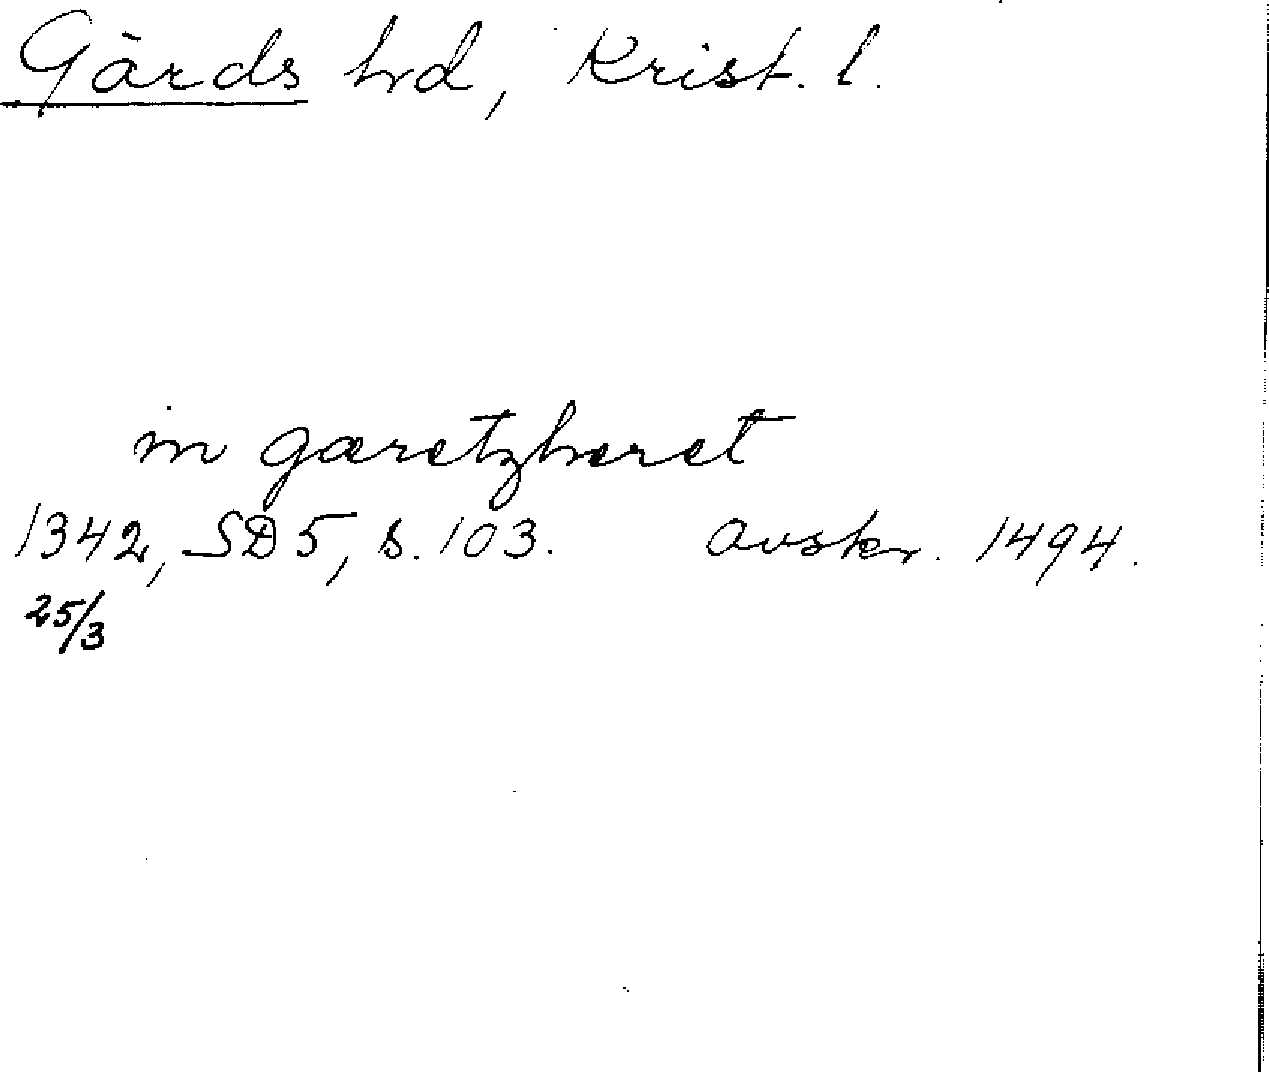 Gärds hrd, Krist. l.
in gæretzhæret
1342, SD 5, s. 103. avskr. 1494.
25/3